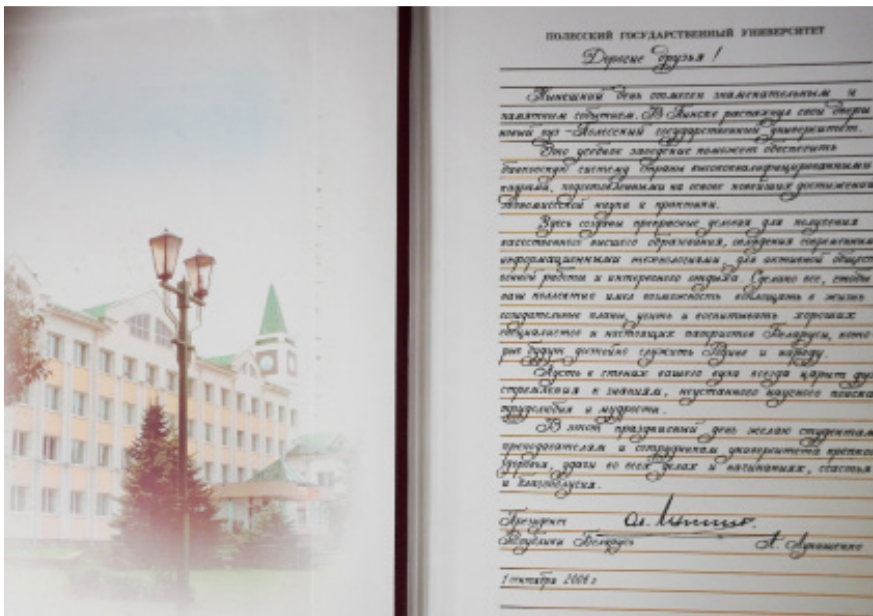 ПОЛЕССКИЙ ГОСУДАРСТВЕННЫЙ УНИВЕРСИТЕТ
Дорогие друзья!
Нынешний день отмечен знаменательным и
памятным событием. В Пинске распахнул свои двери
новый вуз - Полесский государственный университет.
Это учебное заведение поможет обеспечить
банковскую систему страны высококвалифицированными
кадрами, подготовленными на основе новейших достижений
экономической науки и практики.
Здесь созданы прекрасные условия для получения
качественного высшего образования, овладения современным
информационными технологиями, для активной общест
венной работы и интересного отдыха. Сделано все, чтобы
ваш коллектив имел возможность воплощать в жизнь
созидательные планы, учить и воспитывать хороших
специалистов и настоящих патриотов Беларуси, кото
рые будут достойно служить Родине и народу.
Пусть в стенах вашего вуза всегда царит дух
стремления к знаниям, неустанного научного поиска
трудолюбия и мудрости.
В этот праздничный день желаю студентам
преподавателям и сотрудникам университета крепкого
здоровья, удачи во всех делах и начинаниях, счастья
и благополучия.
Президент
Республики Беларусь А. Лукашенко
1 сентября 2006 г